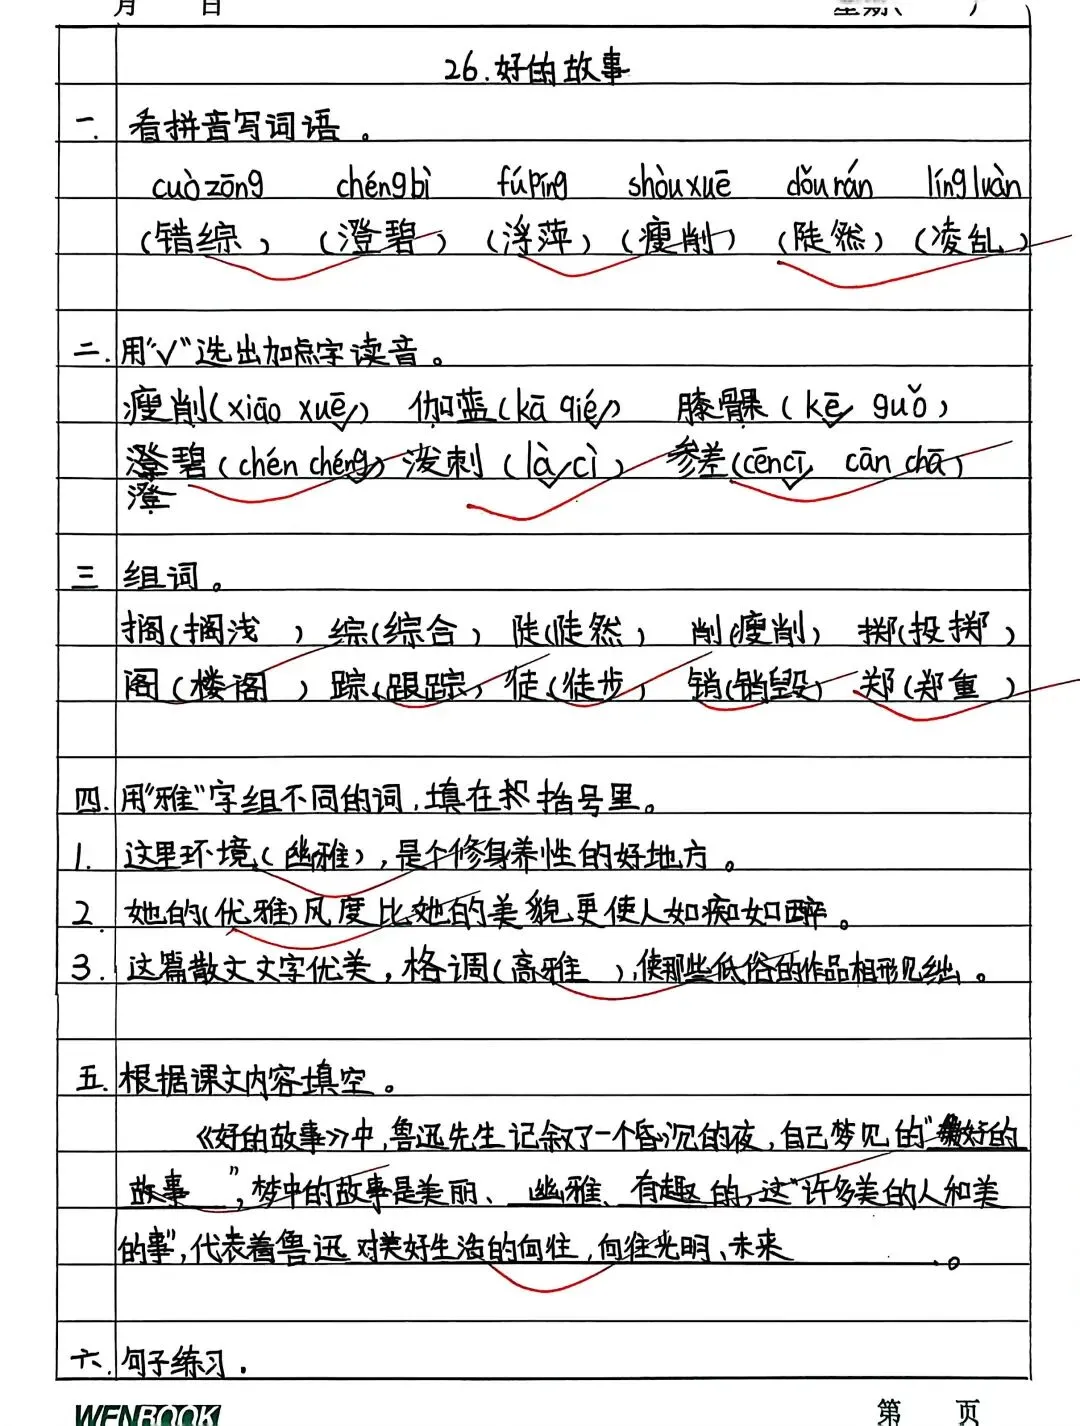 月 日 星期( )
26.好的故事
一. 看拼音写词语。
cuò zōng chéng bì fú píng shòu xuē dǒu rán líng luàn
(错综) (澄碧) (浮萍) (瘦削) (陡然) (凌乱)
二. 用“√”选出加点字读音。
瘦削(xiāo xuē√) 伽蓝(kā qié√) 膝髁(kē√ guǒ)
澄碧(chén chéng√) 泼剌(là√ cì) 参差(cēncī√ cān chā)
澄
三 组词。
搁(搁浅) 综(综合) 陡(陡然) 削(瘦削) 掷(投掷)
阁(楼阁) 踪(跟踪) 徒(徒步) 销(销毁) 郑(郑重)
四. 用“雅”字组不同的词,填在括号里。
1. 这里环境(幽雅),是个修身养性的好地方。
2. 她的(优雅)风度比她的美貌更使人如痴如醉。
3. 这篇散文文字优美,格调(高雅),使那些低俗的作品相形见绌。
五. 根据课文内容填空。
《好的故事》中,鲁迅先生记叙了一个昏沉的夜,自己梦见的“好的
故事”,梦中的故事是美丽、幽雅、有趣的,这“许多美的人和美
的事”,代表着鲁迅对美好生活的向往,向往光明、未来。
六. 句子练习.
WENBOOK 第 页